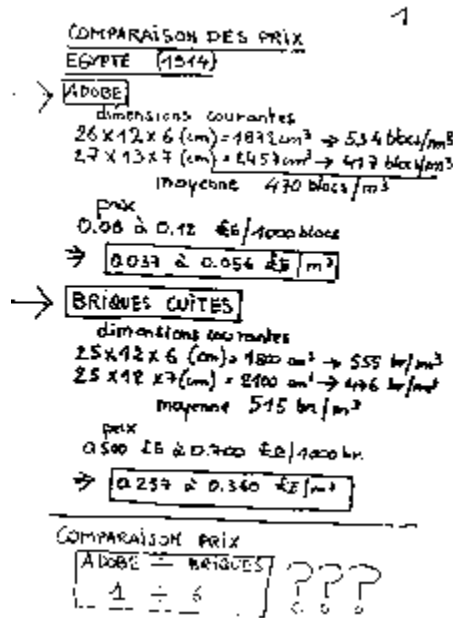 1
COMPARAISON DES PRIX
EGYPTE (1914)
→ ADOBE
dimensions courantes
26 x 12 x 6 (cm) = 1872 cm³ → 534 blocs/m³
27 x 13 x 7 (cm) = 2457 cm³ → 417 blocs/m³
moyenne 470 blocs/m³
prix
0.08 à 0.12 £E/1000 blocs
⇒ 0.037 à 0.056 £E/m³
→ BRIQUES CUITES
dimensions courantes
25 x 12 x 6 (cm) = 1800 cm³ → 555 br/m³
25 x 12 x 7 (cm) = 2100 cm³ → 476 br/m³
moyenne 515 br/m³
prix
0.500 £E à 0.700 £E/1000 br.
⇒ 0.257 à 0.360 £E/m³
COMPARAISON PRIX
ADOBE ÷ BRIQUES
1 ÷ 6 ???